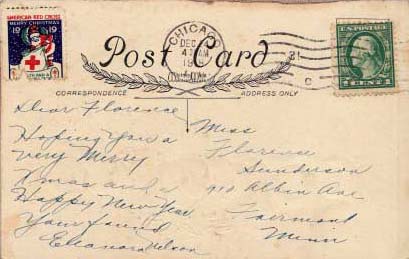 AMERICAN RED CROSS
MERRY CHRISTMAS
1919
CHICAGO
DEC
U.S. POSTAGE
Post Card
CORRESPONDENCE
ADDRESS ONLY
Dear Florence
Hoping you a
very Merry
Xmas and a
Happy New Year
Your friend
Eleanora Nelson
Miss
Florence
Sunderson
910 Albin Ave
Fairmont
Minn